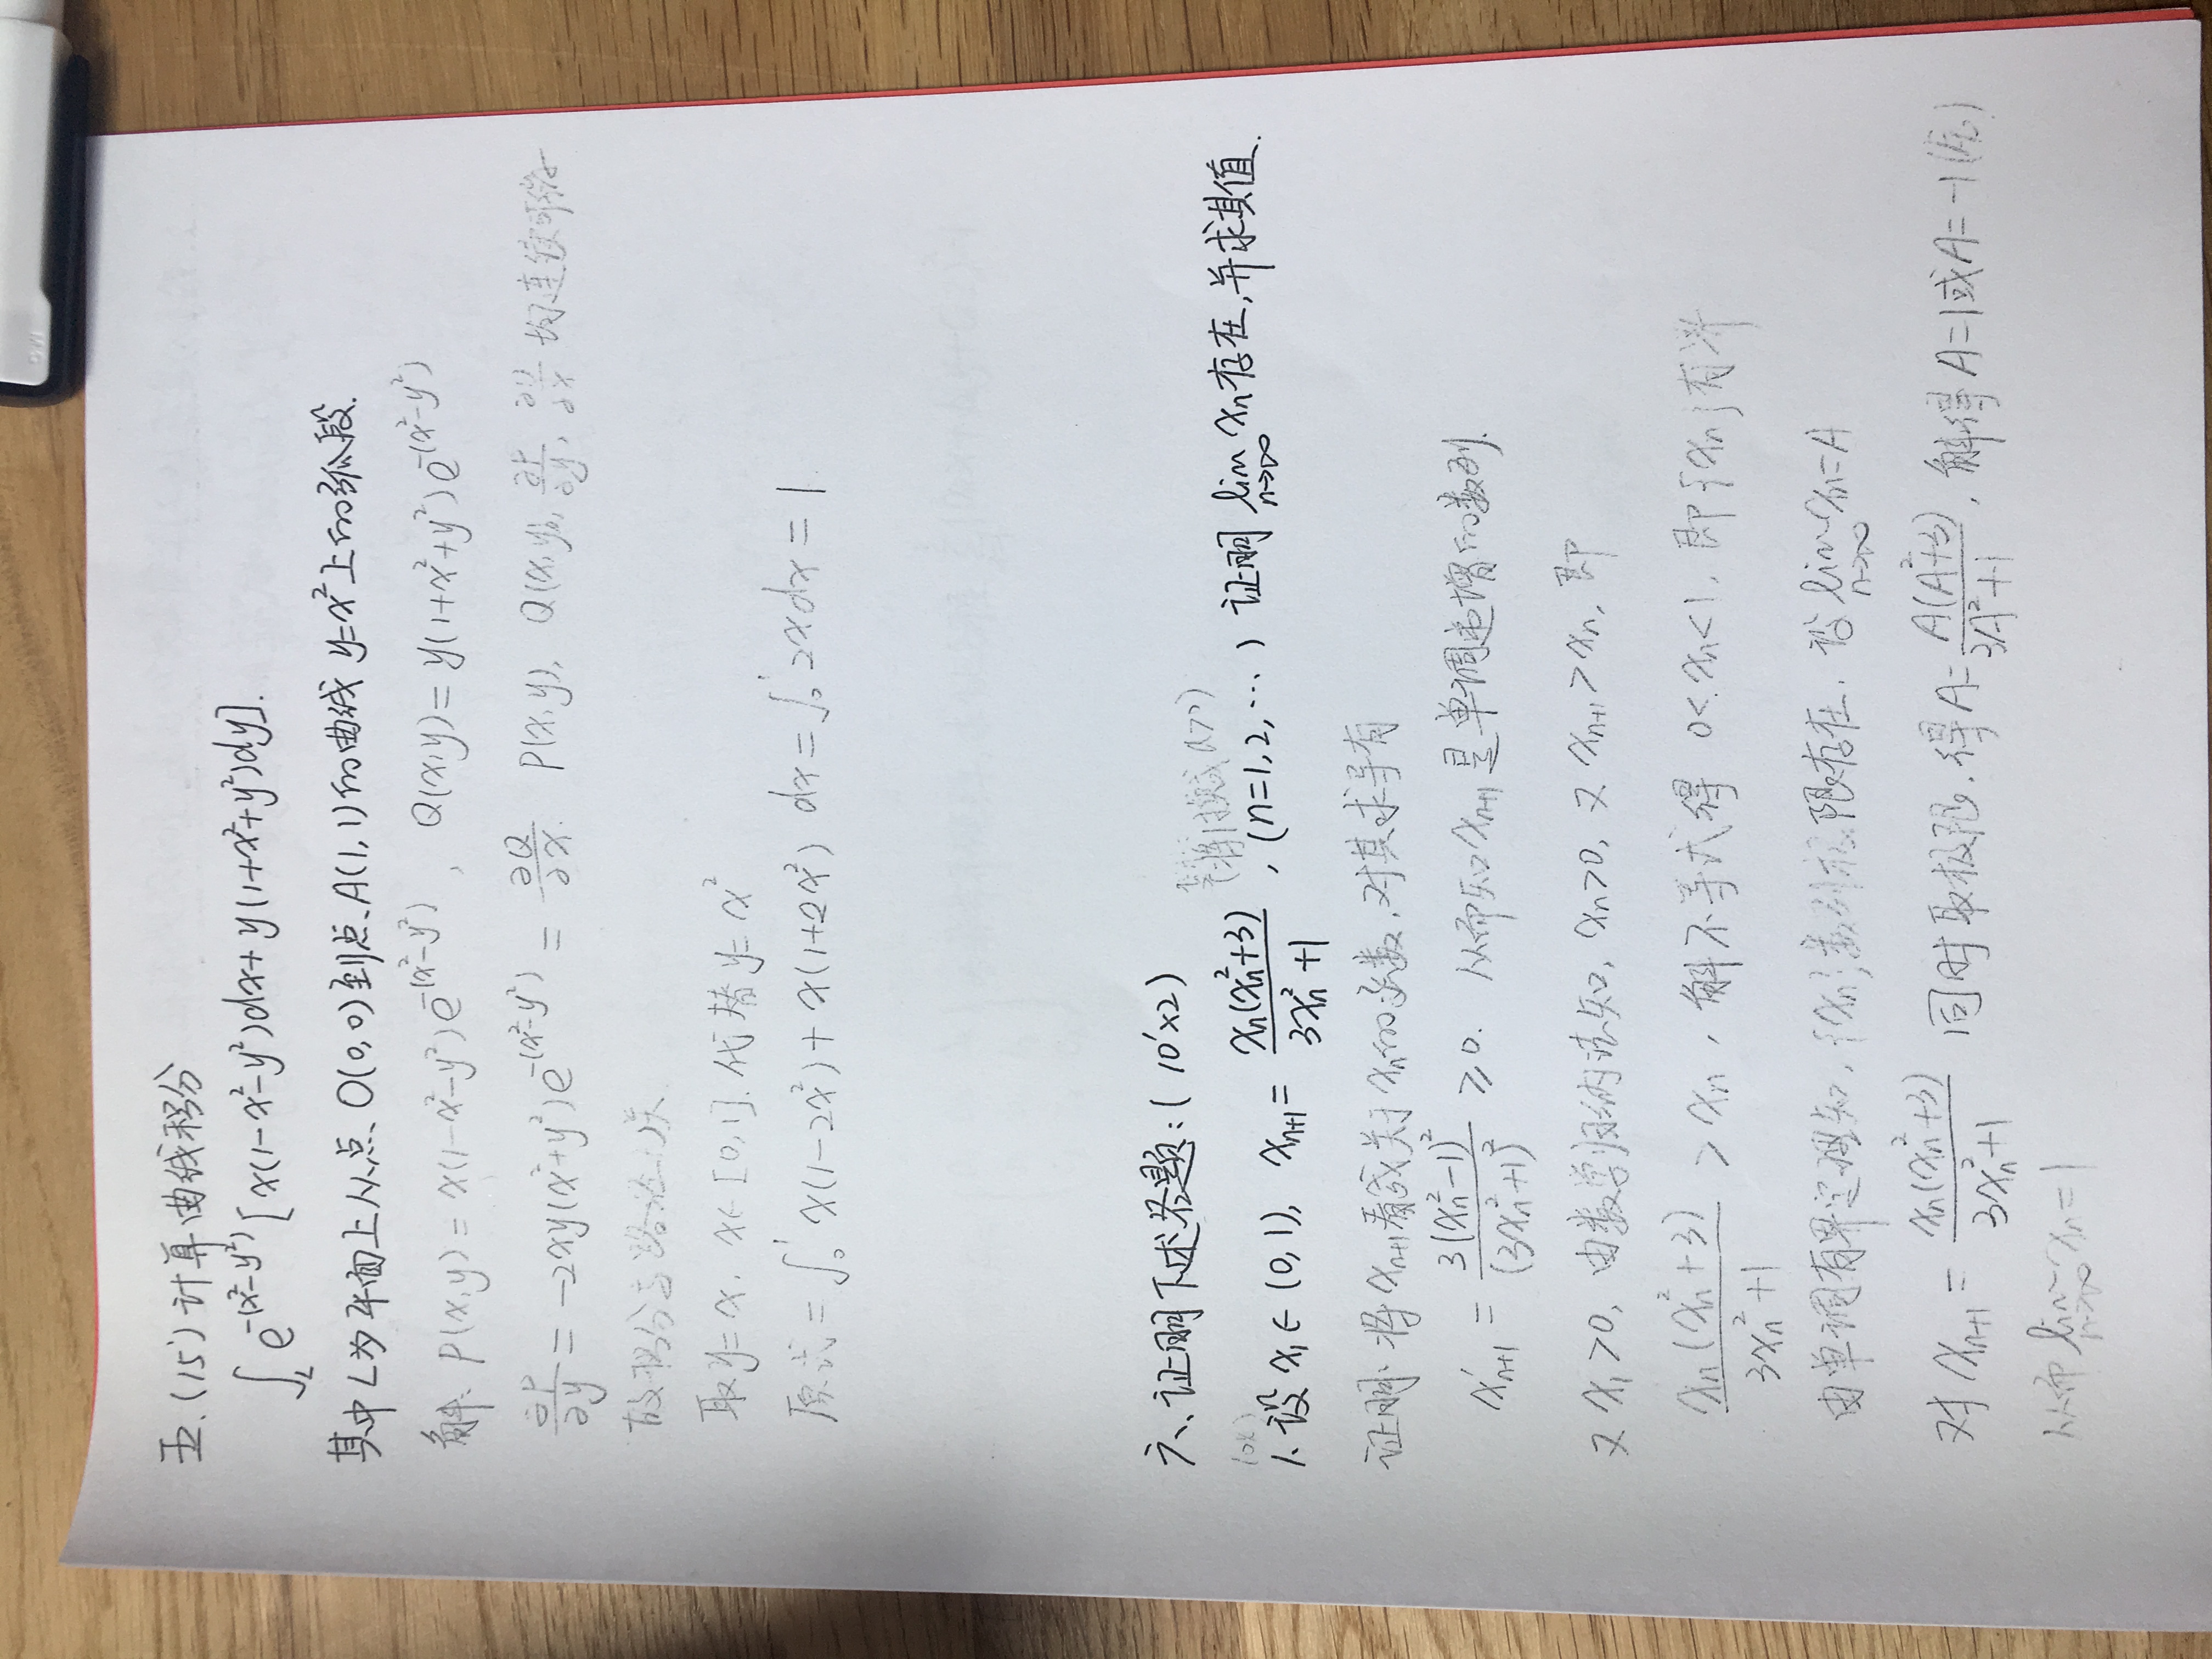 五、(15') 计算曲线积分
∫_L e^{-(x²-y²)} [x(1-x²-y²)dx + y(1+x²+y²)dy].
其中 L 为平面上从点 O(0,0) 到点 A(1,1) 的曲线 y=x² 上的弧段.
解: P(x,y) = x(1-x²-y²)e^{-(x²-y²)}, Q(x,y) = y(1+x²+y²)e^{-(x²-y²)}
∂P/∂y = -2xy(x²+y²)e^{-(x²-y²)} = ∂Q/∂x. P(x,y), Q(x,y), ∂P/∂y, ∂Q/∂x 均连续可微
故积分与路径无关
取 y=x, x∈[0,1]. 代替 y=x²
原式 = ∫₀¹ x(1-2x²) + x(1+2x²) dx = ∫₀¹ 2x dx = 1
六、证明下述各题: (10'×2)
1、设 x₁∈(0,1), x_{n+1} = xₙ(xₙ²+3)/(3xₙ²+1), (n=1,2,…) 证明 lim_{n→∞} xₙ 存在, 并求其值.
证明: 将 x_{n+1} 看成关于 xₙ 的函数, 对其求导有
x'_{n+1} = 3(xₙ²-1)²/(3xₙ²+1)² ≥ 0. 从而知 x_{n+1} 是单调递增的数列.
又 x₁>0, 由数学归纳法知, xₙ>0, 又 x_{n+1}>xₙ, 即
xₙ(xₙ²+3)/(3xₙ²+1) > xₙ, 解不等式得 0<xₙ<1, 即 {xₙ} 有界
由单调有界定理知, {xₙ} 数列极限存在, 设 lim_{n→∞} xₙ=A
对 x_{n+1} = xₙ(xₙ²+3)/(3xₙ²+1) 同时取极限, 得 A = A(A²+3)/(3A²+1), 解得 A=1 或 A=-1
从而 lim_{n→∞} xₙ=1